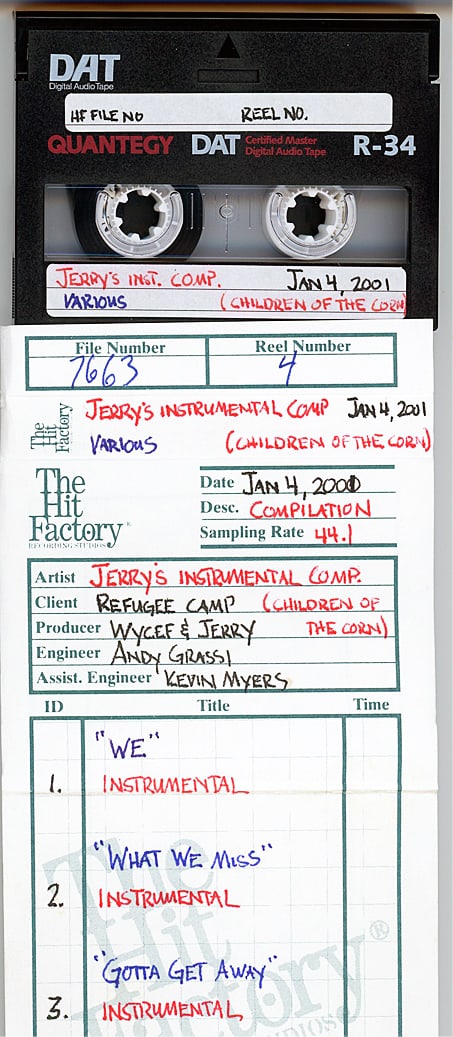 DAT
Digital Audio Tape
HF FILE NO REEL NO.
QUANTEGY DAT Certified Master Digital Audio Tape R-34
JERRY'S INST. COMP. JAN 4, 2001
VARIOUS (CHILDREN OF THE CORN
File Number Reel Number
7663 4
The Hit Factory
JERRY'S INSTRUMENTAL COMP JAN 4, 2001
VARIOUS (CHILDREN OF THE CORN)
The
Hit
Factory®
RECORDING STUDIOS
Date JAN 4, 2001
Desc. COMPILATION
Sampling Rate 44.1
Artist JERRY'S INSTRUMENTAL COMP.
Client REFUGEE CAMP (CHILDREN OF
Producer WYCEF & JERRY THE CORN)
Engineer ANDY GRASSI
Assist. Engineer KEVIN MYERS
ID Title Time
"WE"
1. INSTRUMENTAL
"WHAT WE MISS"
2. INSTRUMENTAL
"GOTTA GET AWAY"
3. INSTRUMENTAL
The
Hit
Factory®
STUDIOS